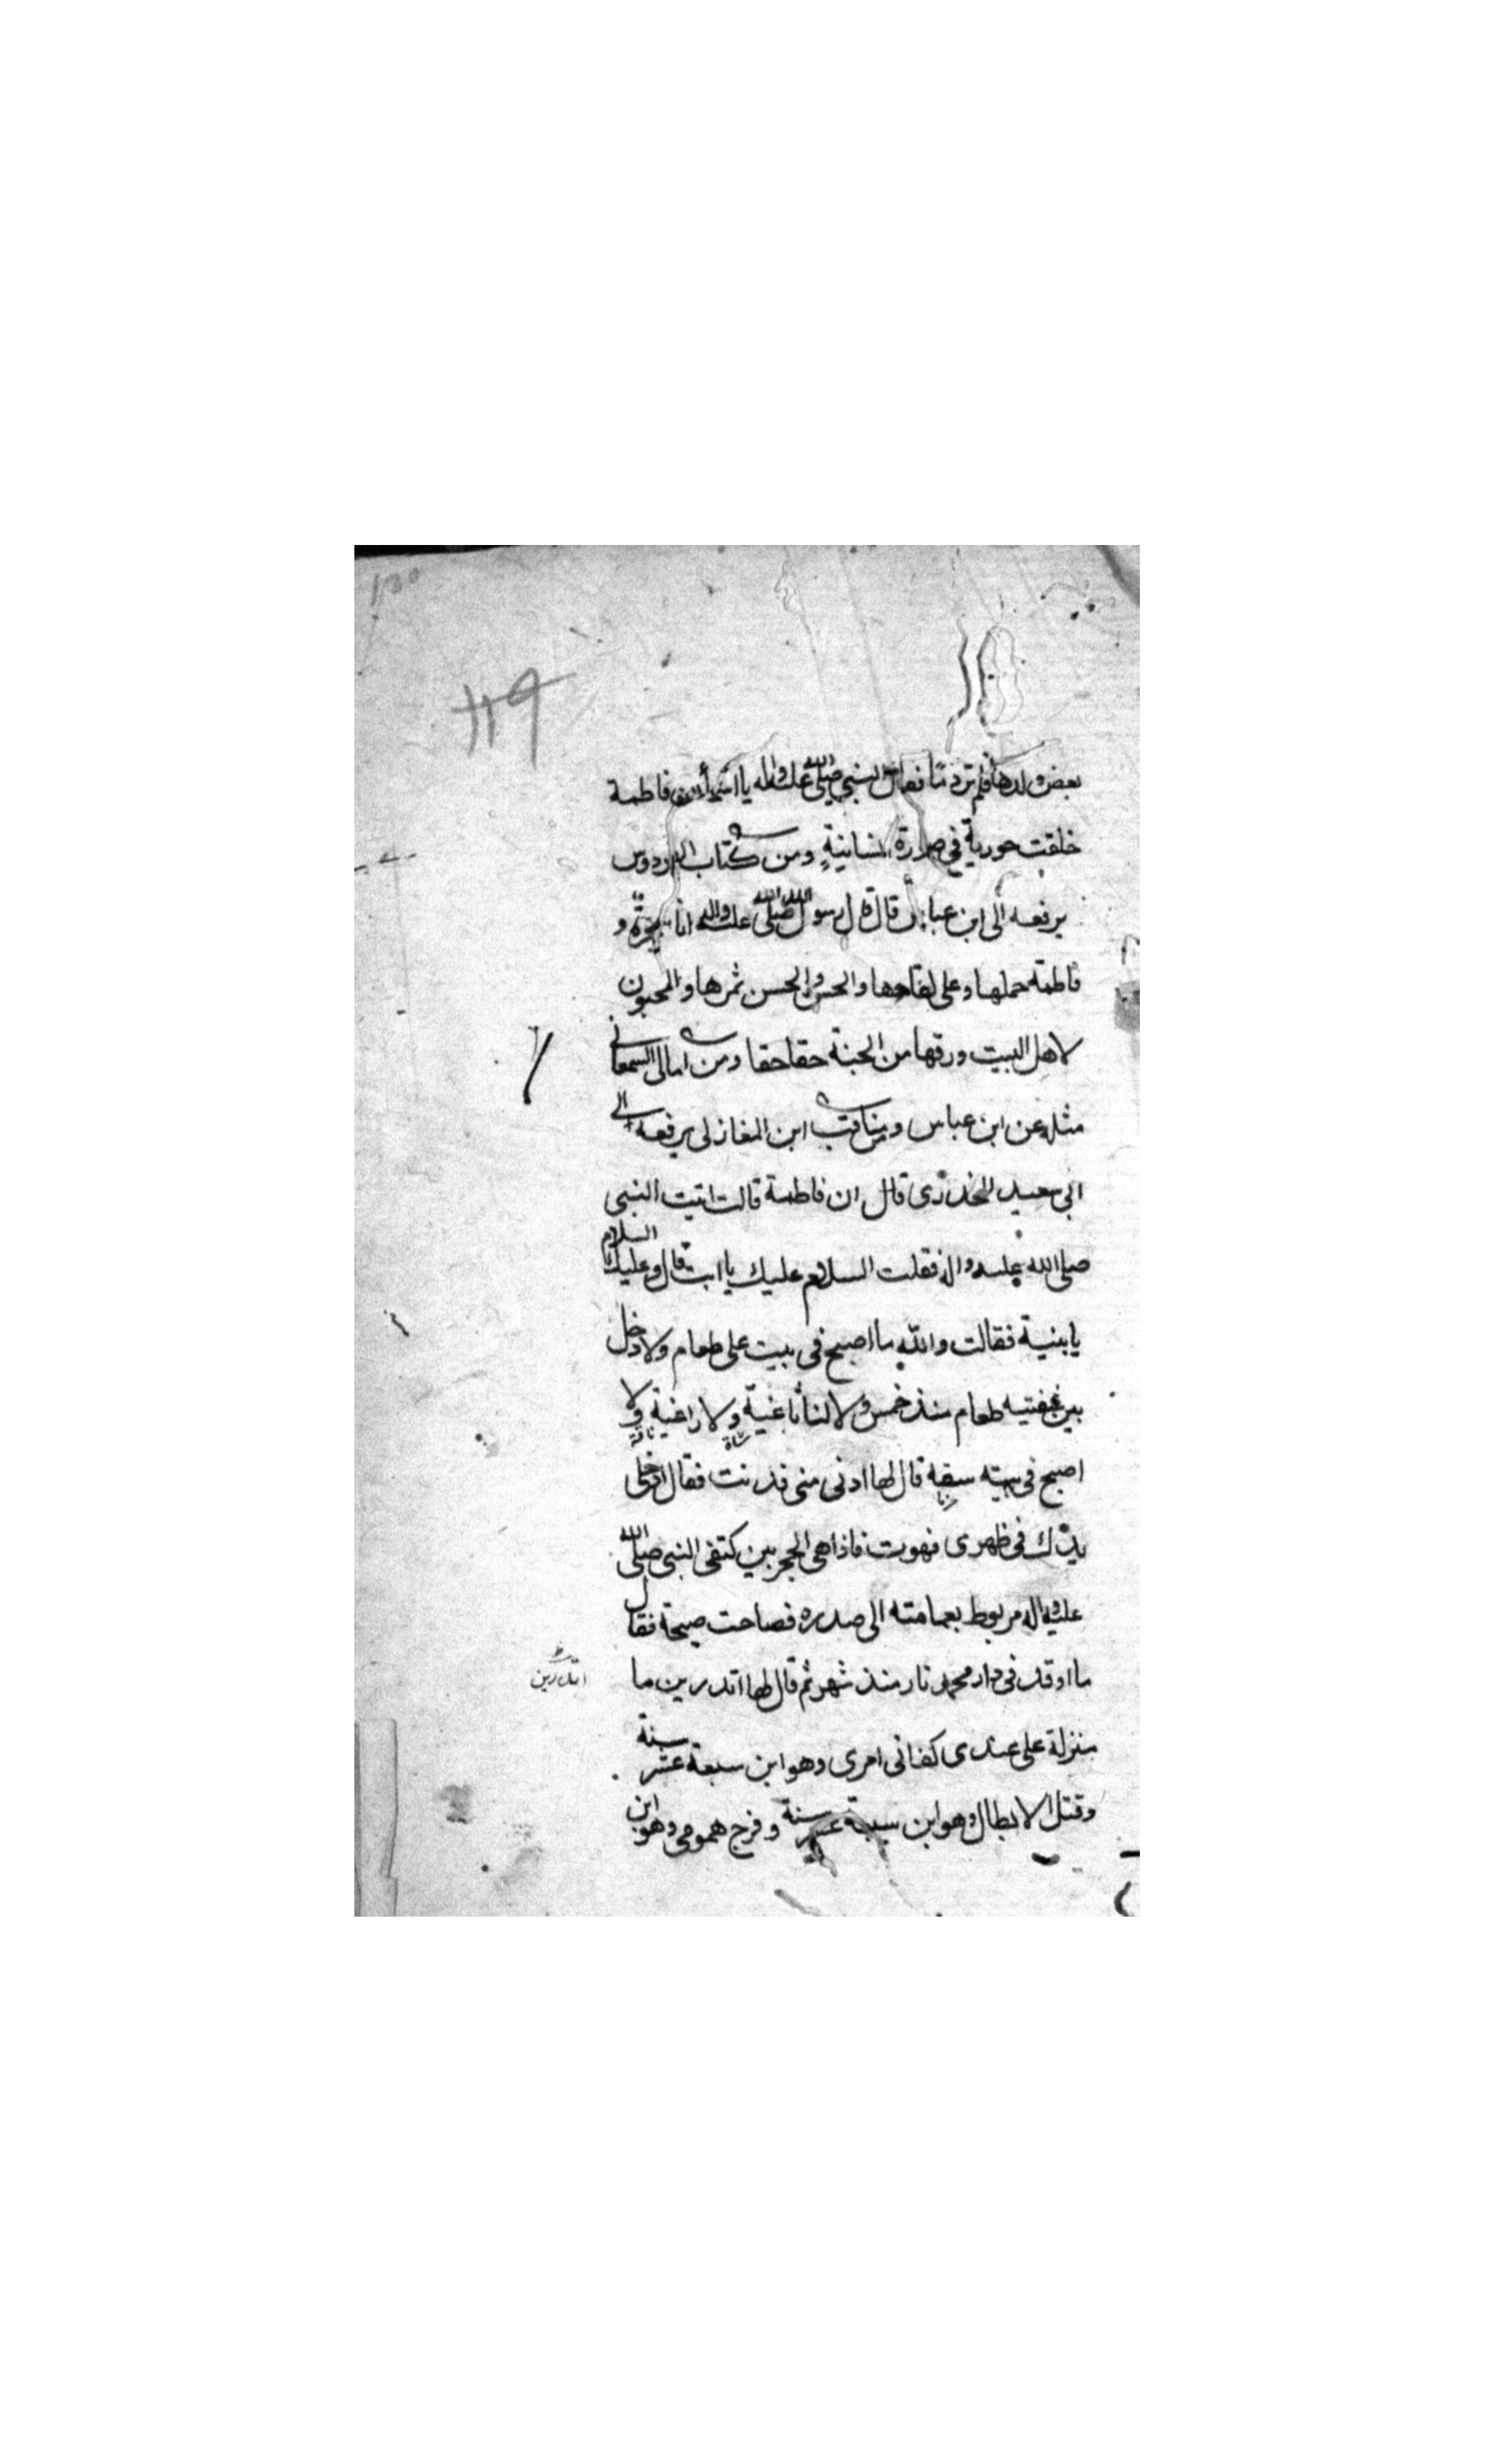 130
119
بعض ولدها فلم تر دما فقال النبي صلى الله عليه واله يا اسماء ان فاطمة
خلقت حورية في صورة انسانية ومن كتاب الفردوس
يرفعه الى ابن عباس قال قال رسول الله صلى الله عليه واله انا شجرة و
فاطمة حملها وعلى لقاحها والحسن والحسين ثمرها والمحبون
لاهل البيت ورقها من الجنة حقا حقا ومن امالى السمعانى
مثله عن ابن عباس ومن مناقب ابن المغازلى يرفعه الى
ابى سعيد الخدرى قال ان فاطمة قالت اتيت النبى
صلى الله عليه واله فقلت السلام عليك يا ابت قال وعليك السلام
يا بنية فقالت والله ما اصبح فى بيت على طعام ولا دخل
بين شفتيه طعام منذ خمس ولا لنا ثاغية ولا راغية ولا
شاة ناقة
اصبح فى بيته سفة قال لها ادنى منى فدنت فقال ادخلى
يدك فى ظهرى فهوت فاذا هى الحجر بين كتفى النبى صلى الله
عليه واله مربوط بعمامته الى صدره فصاحت صيحة فقال
ما اوقد فى دار محمد نار منذ شهر ثم قال لها اتدرين ما
اتدرين
منزلة على عندى كفانى امرى وهو ابن سبعة عشر سنة
وقتل الابطال وهو ابن سبعة عشر سنة وفرج همومى وهو ابن